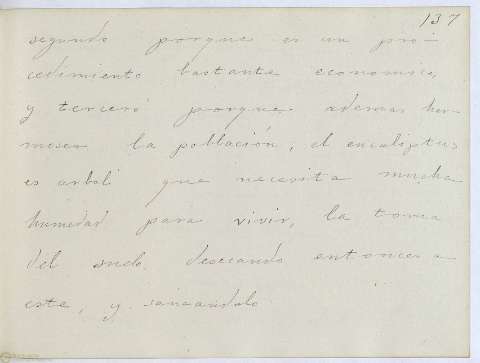 137
segundo porque es un pro-
cedimiento bastante economico,
y tercero porque ademas her-
mosea la población, el eucaliptus
es arbol que necesita mucha
humedad para vivir, la toma
del suelo desecando entonces a
este, y saneandolo